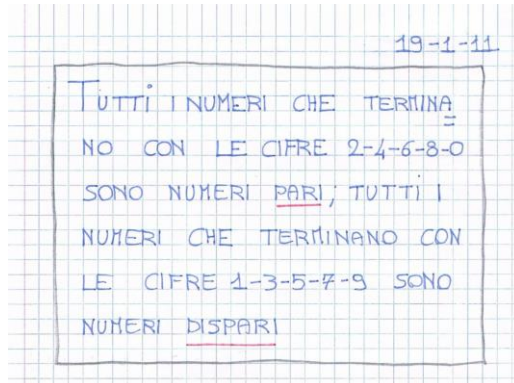 19-1-11
TUTTI I NUMERI CHE TERMINA
NO CON LE CIFRE 2-4-6-8-0
SONO NUMERI PARI; TUTTI I
NUMERI CHE TERMINANO CON
LE CIFRE 1-3-5-7-9 SONO
NUMERI DISPARI